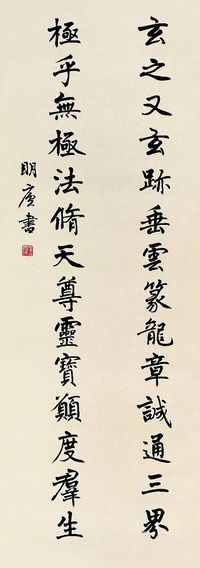 玄之又玄跡垂雲篆龍章誠通三界
極乎無極法脩天尊靈寶願度羣生
明廣書